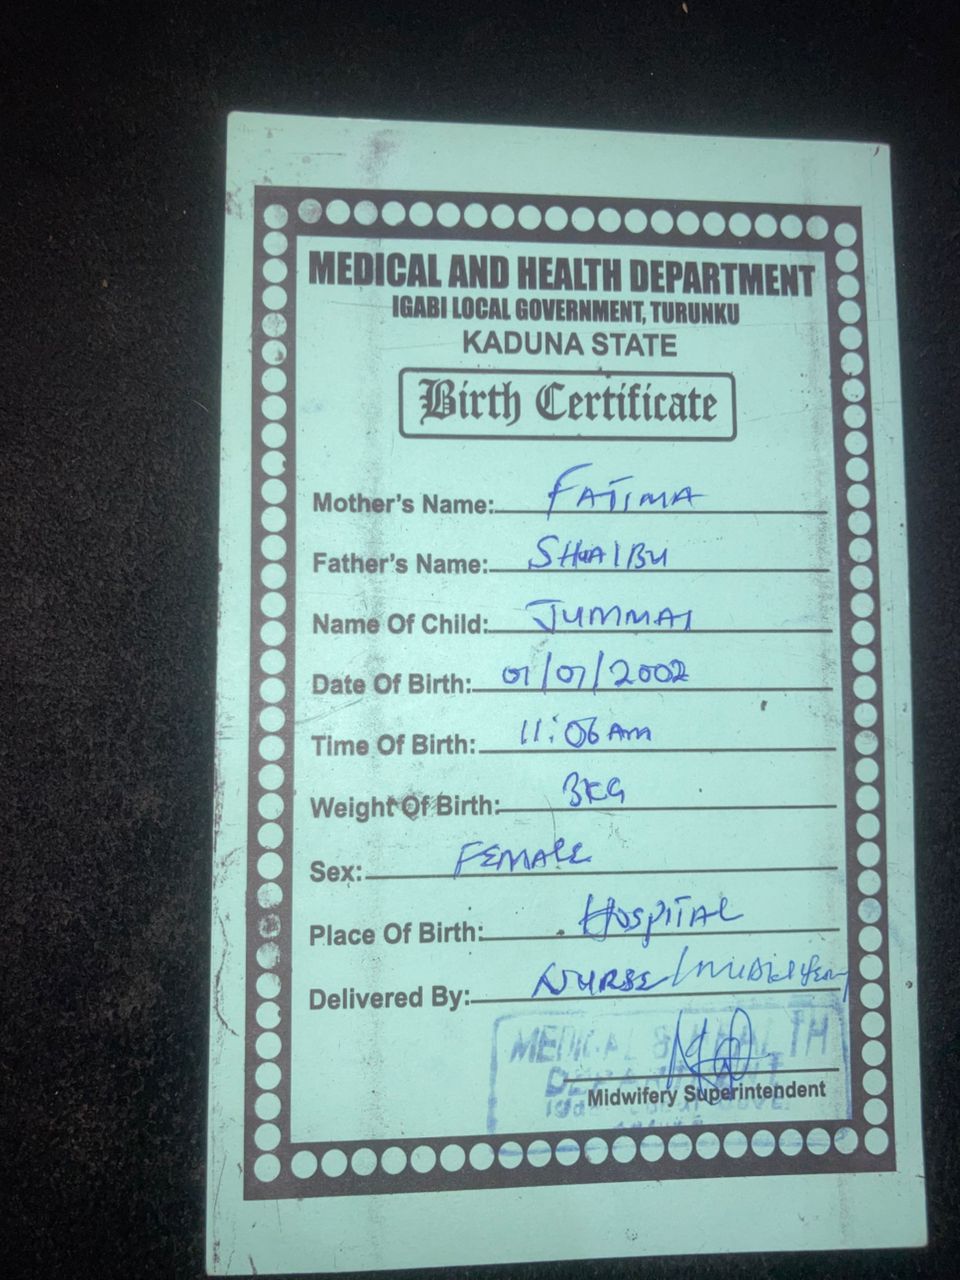 MEDICAL AND HEALTH DEPARTMENT
IGABI LOCAL GOVERNMENT, TURUNKU
KADUNA STATE
Birth Certificate
Mother's Name: FATIMA
Father's Name: SHUAIBU
Name Of Child: JUMMAI
Date Of Birth: 01/01/2002
Time Of Birth: 11:06 Am
Weight Of Birth: 3KG
Sex: FEMALE
Place Of Birth: HOSPITAL
Delivered By: NURSE/midwifery
MEDICAL & HEALTH
DEPARTMENT
Midwifery Superintendent